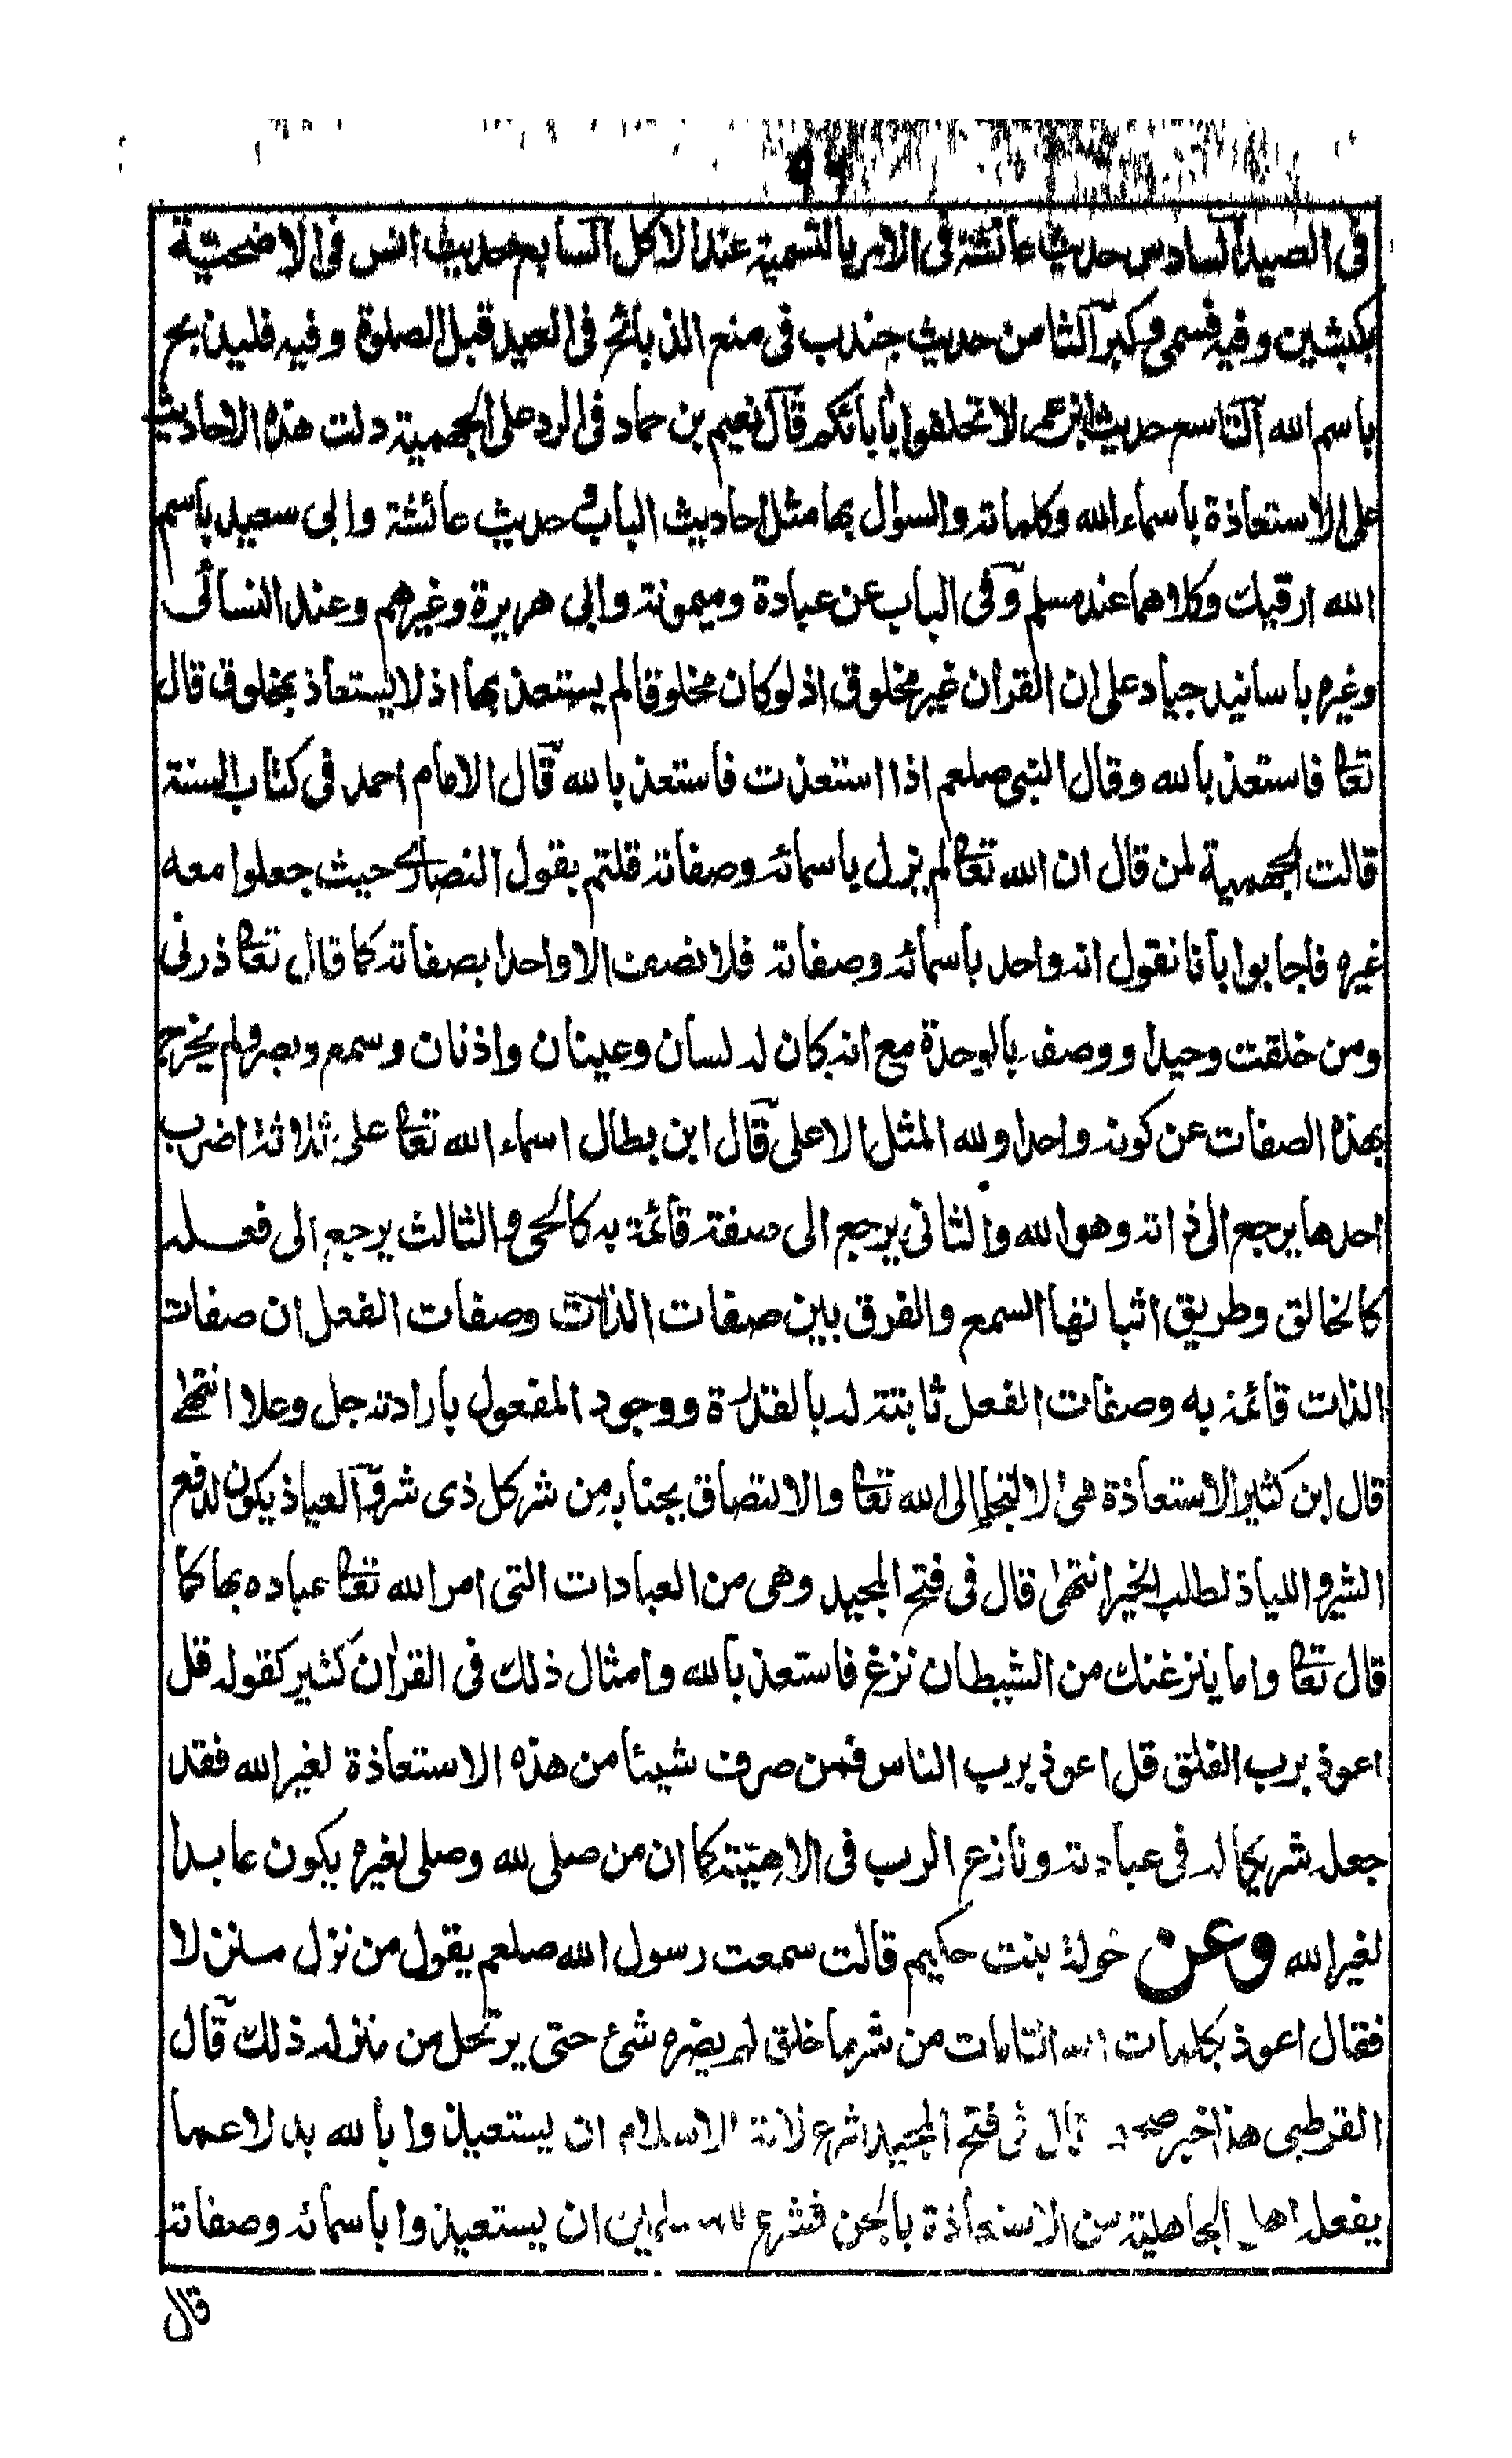 ٩٦
فى الصيد السادس حديث عائشة فى الامر بالتسمية عند الاكل السابع حديث انس فى الاضحية
بكبشين وفيه فسمى وكبر الثامن حديث جندب فى منع الذبائح فى العيد قبل الصلوة وفيه فليذبح
باسم الله التاسع حديث ابن عمر لا تحلفوا بأبائكم قال نعيم بن حماد فى الرد على الجهمية دلت هذه الاحاديث
على الاستعاذة باسماء الله وكلماته والسؤال بها مثل احاديث الباب وحديث عائشة وابى سعيد باسم
الله ارقيك وكلاهما عند مسلم وفى الباب عن عبادة وميمونة وابى هريرة وغيرهم وعند النسائى
وغيره باسانيد جياد على ان القرأن غير مخلوق اذ لو كان مخلوقا لم يستعذ بها اذ لا يستعاذ بمخلوق قال
تعالى فاستعذ بالله وقال النبى صلعم اذا استعذت فاستعذ بالله قال الامام احمد فى كتاب السنة
قالت الجهمية لمن قال ان الله تعالى لم يزل باسمائه وصفاته قلتم بقول النصارى حيث جعلوا معه
غيره فاجابوا بأنا نقول انه واحد بأسمائه وصفاته فلا نصف الا واحدا بصفاته كما قال تعالى ذرنى
ومن خلقت وحيدا ووصفه بالوحدة مع انه كان له لسان وعينان واذنان وسمع وبصر ولم يخرج
بهذه الصفات عن كونه واحدا ولله المثل الاعلى قال ابن بطال اسماء الله تعالى على ثلاثة اضرب
احدها يرجع الى ذاته وهو الله والثانى يرجع الى صفة قائمة به كالحى والثالث يرجع الى فعله
كالخالق وطريق اثباتها السمع والفرق بين صفات الذات وصفات الفعل ان صفات
الذات قائمة به وصفات الفعل ثابتة له بالقدرة ووجود المفعول بارادته جل وعلا انتهى
قال ابن كثير الاستعاذة هى الالتجا الى الله تعالى والالتصاق بجنابه من شر كل ذى شر والعياذ يكون لدفع
الشر واللياذ لطلب الخير انتهى قال فى فتح المجيد وهى من العبادات التى امر الله تعالى عباده بها كما
قال تعالى واما ينزغنك من الشيطان نزغ فاستعذ بالله وامثال ذلك فى القرأن كثير كقوله قل
اعوذ برب الفلق قل اعوذ برب الناس فمن صرف شيئا من هذه الاستعاذة لغير الله فقد
جعله شريكا له فى عبادته ونازع الرب فى الاهيته كما ان من صلى لله وصلى لغيره يكون عابدا
لغير الله وعن خولة بنت حكيم قالت سمعت رسول الله صلعم يقول من نزل منزلا
فقال اعوذ بكلمات الله التامات من شر ما خلق لم يضره شئ حتى يرتحل من منزله ذلك قال
القرطبى هذا خبر صحيح قال فى فتح المجيد شرع الاسلام ان يستعيذوا بالله بدلا عما
يفعله اهل الجاهلية من الاستعاذة بالجن فشرع للمسلمين ان يستعيذوا باسمائه وصفاته
قال